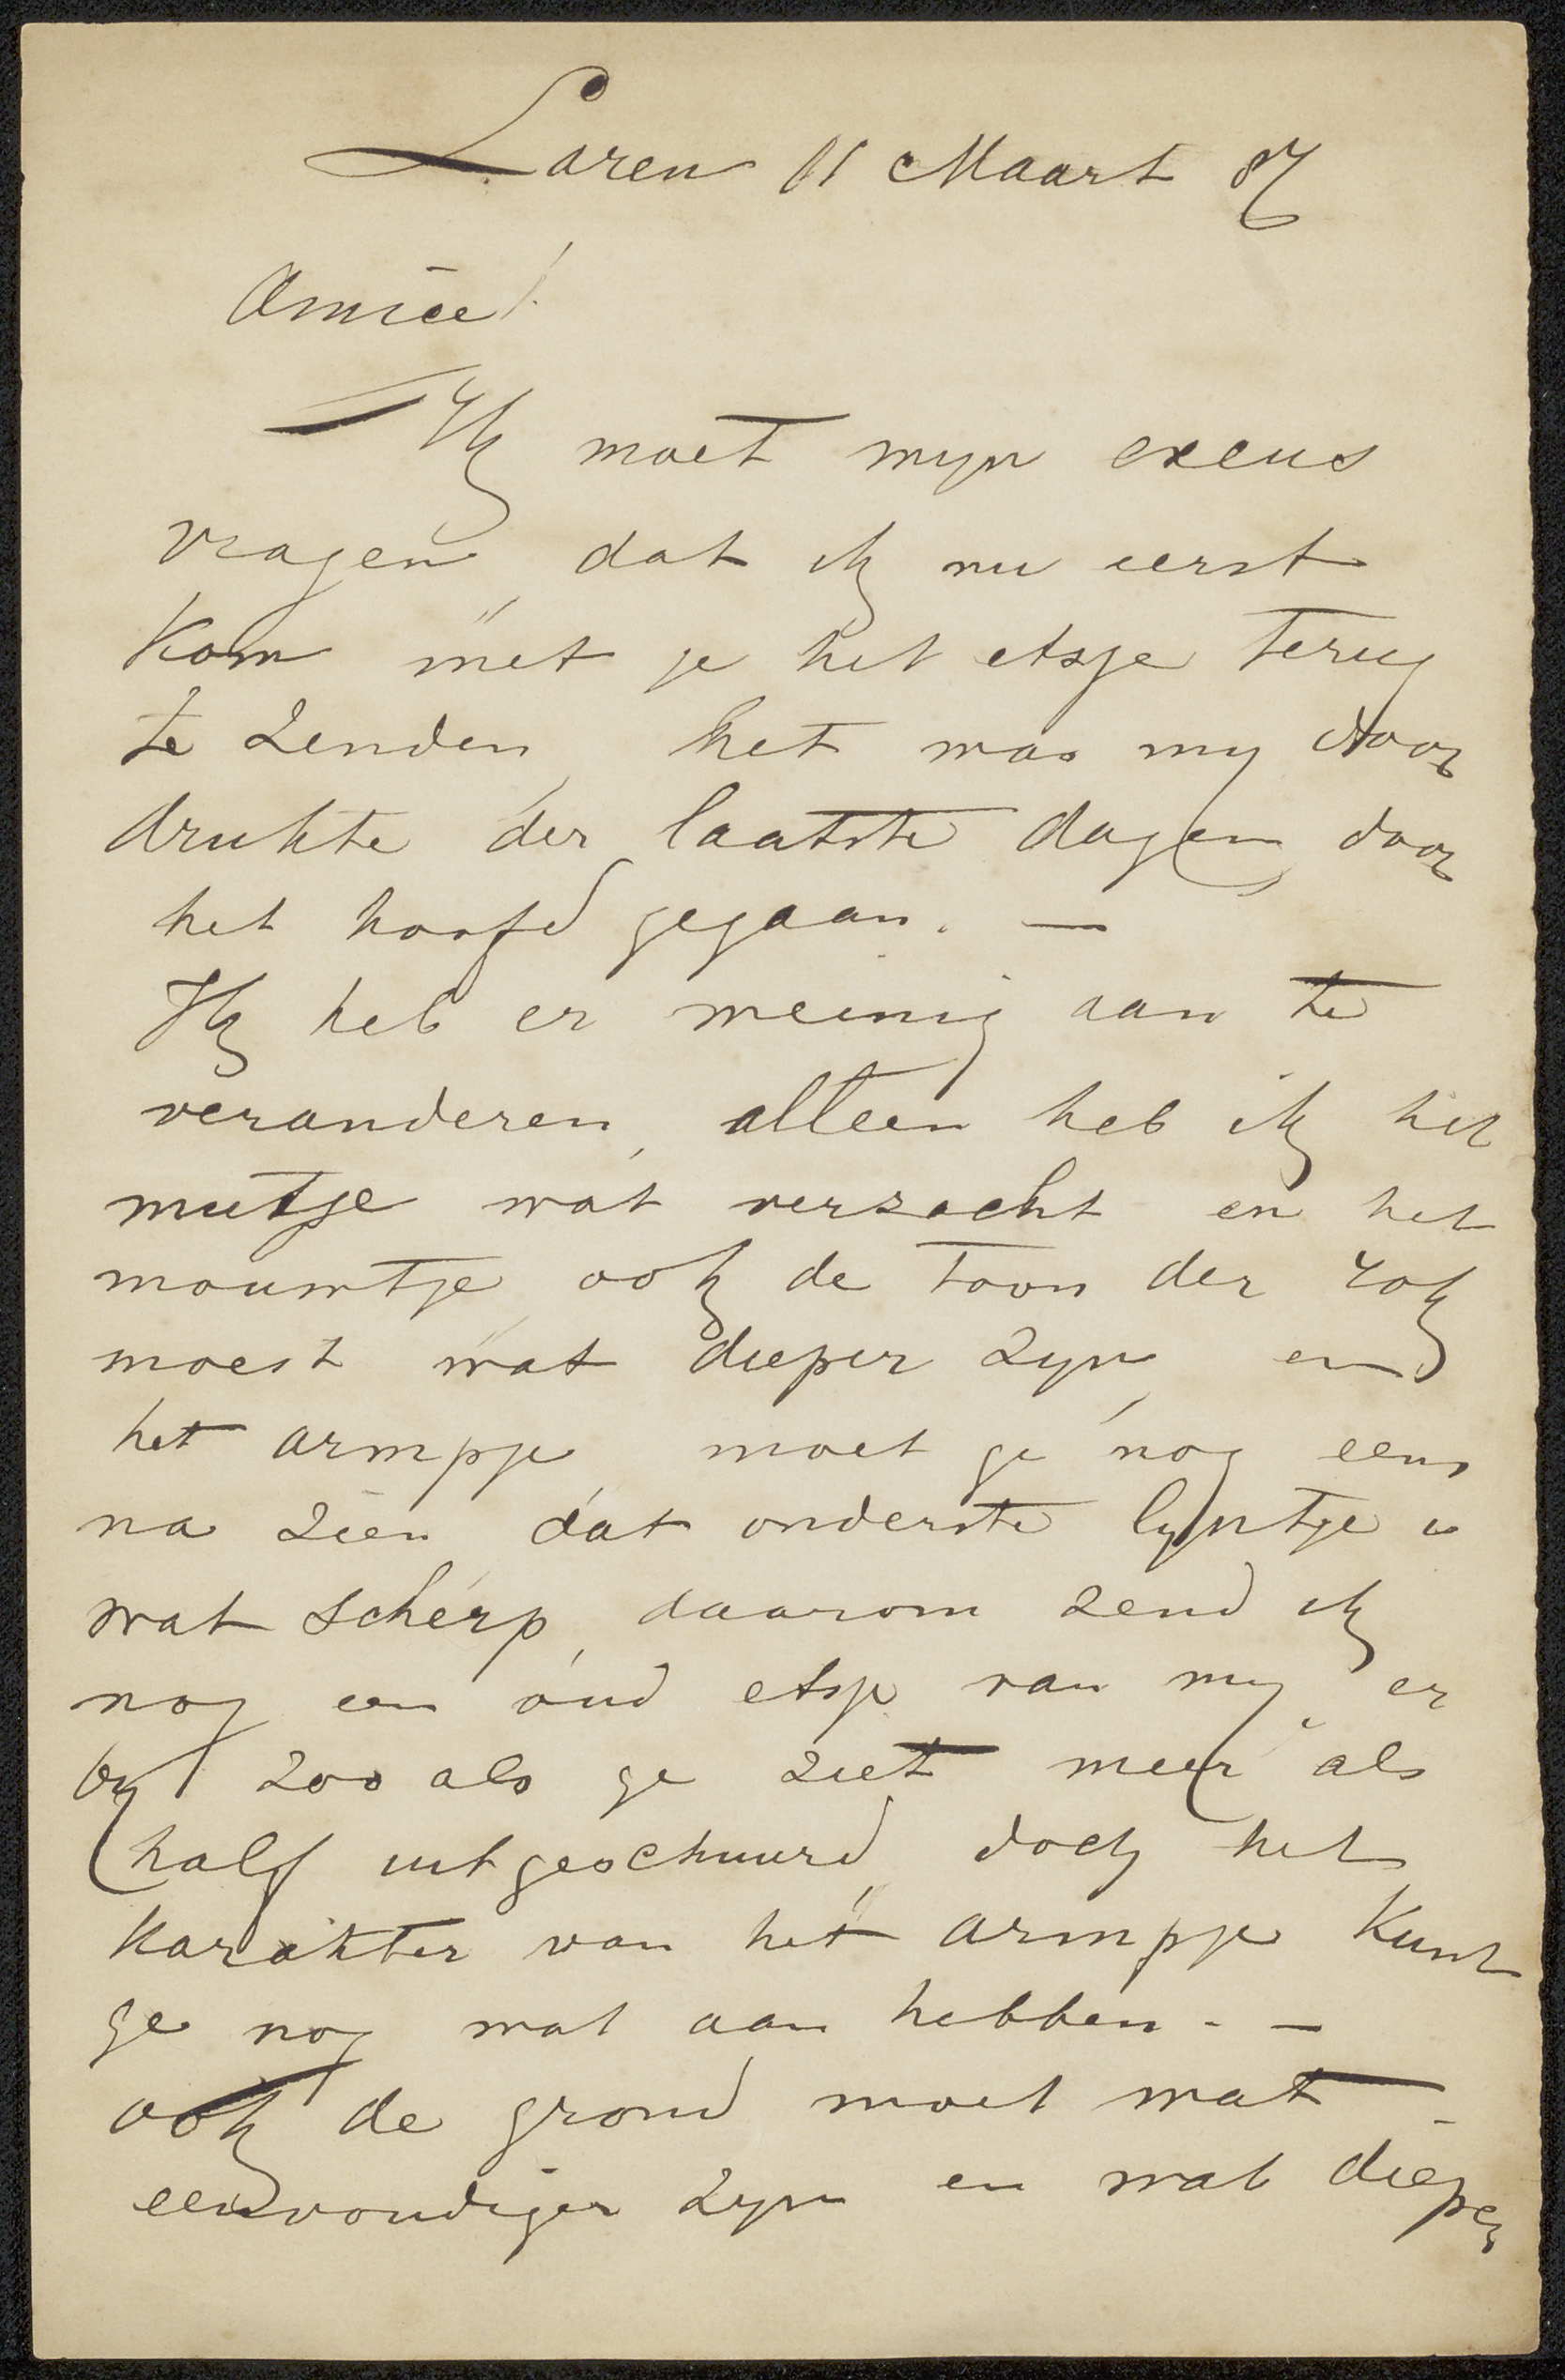 Laren 11 Maart 87
Amice!
Ik moet myn excus
vragen dat ik nu eerst
kom met je het etsje terug
te zenden, het was my door
drukte der laatste dagen door
het hoofd gegaan. —
Ik heb er weinig aan te
veranderen, alleen heb ik het
mutsje wat verzacht en het
mouwtje ook de toon der rok
moest wat dieper zyn, en
het armpje moet ge nog eens
na zien dat onderste lyntje is
wat scherp, daarom zend ik
nog een oud etsje van my er
by zoo als ge ziet meer als
half uitgeschuurd doch het
karakter van het armpje kunt
ge nog wat aan hebben. —
ook de grond moet wat
eenvoudiger zyn en wat dieper